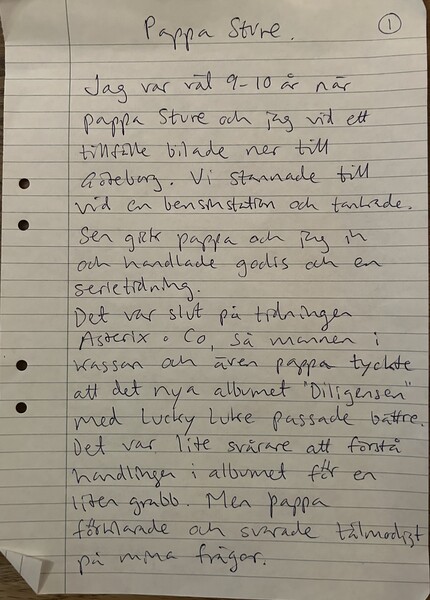 Pappa Sture. 1
Jag var väl 9-10 år när
pappa Sture och jag vid ett
tillfälle bilade ner till
Göteborg. Vi stannade till
vid en bensinstation och tankade.
Sen gick pappa och jag in
och handlade godis och en
serietidning.
Det var slut på tidningen
Asterix o Co, så mannen i
kassan och även pappa tyckte
att det nya albumet "Diligensen"
med Lucky Luke passade bättre.
Det var lite svårare att förstå
handlingen i albumet för en
liten grabb. Men pappa
förklarade och svarade tålmodigt
på mina frågor.